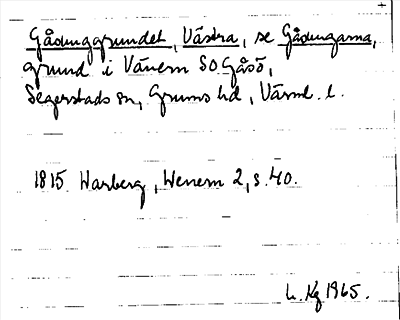 Gåsungagrundet, Västra, se Gåsungarna,
grund i Vänern SO Gåsö,
Segerstads sn, Grums hd, Värml. l.
1815 Warberg, Wenern 2, s. 40.
Kg 1965.